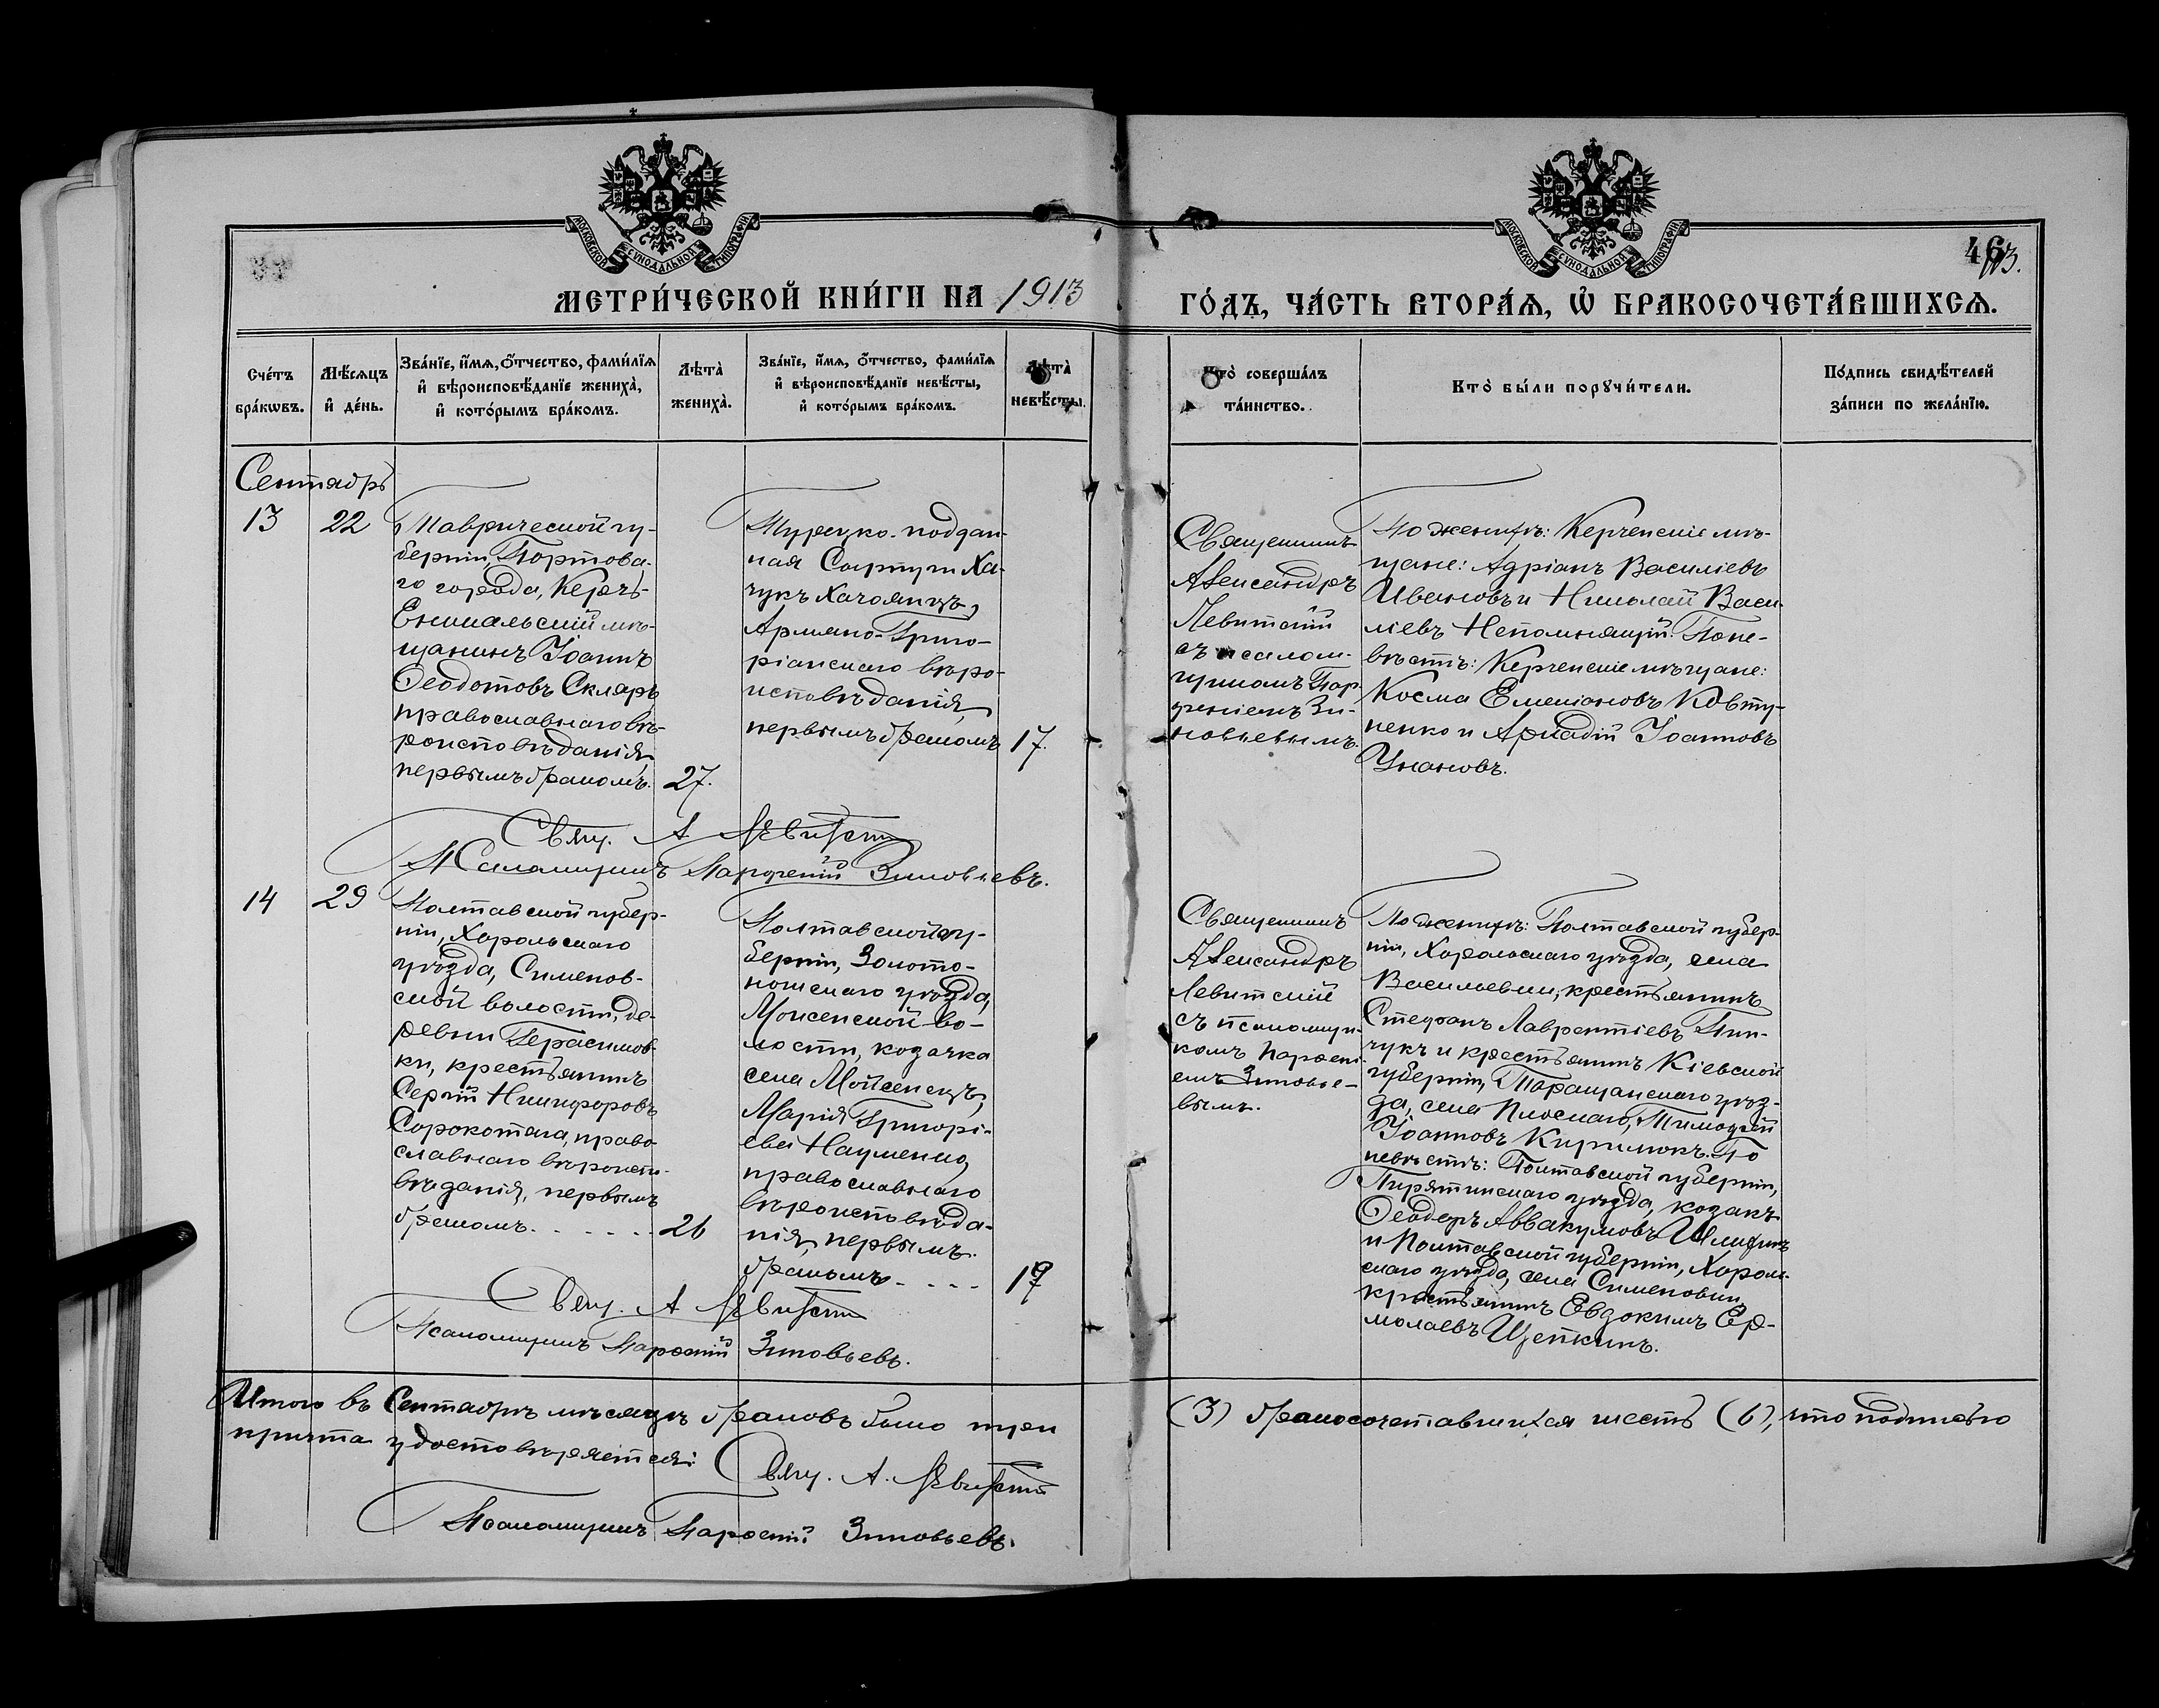 МОСКОВСКОЙ СУНОДАЛЬНОЙ ТИПОГРАФІИ
МОСКОВСКОЙ СУНОДАЛЬНОЙ ТИПОГРАФІИ
46
МЕТРИ́ЧЕСКОЙ КНИ́ГИ НА 1913
ГО́ДЪ, ЧА́СТЬ ВТОРА́Ѧ, Ѡ҆ БРАКОСОЧЕТА́ВШИХСѦ.
Сче́тъ
бра́кѡвъ.
Мѣ́сѧцъ
и҆ де́нь.
Зва́нїе, и҆́мѧ, ѻ҆́тчество, фами́лїѧ
и҆ вѣроисповѣ́данїе жениха̀,
и҆ кото́рымъ бра́комъ.
Лѣта̀
жениха̀.
Зва́нїе, и҆́мѧ, ѻ҆́тчество, фами́лїѧ
и҆ вѣроисповѣ́данїе невѣ́сты,
и҆ кото́рымъ бра́комъ.
Лѣта̀
невѣ́сты.
Кто̀ соверша́лъ
та́инство.
Кто̀ бы́ли порꙋчи́тели.
По́дпись свидѣ́телей
за́писи по жела́нїю.
Сентябрь
13
22
Таврической гу-
берніи, Портова-
го города, Керчь-
Еникальскій мѣ-
щанинъ Іоаннъ
Ѳеодотовъ Скляръ
православнаго вѣ-
роисповѣданія,
первымъ бракомъ.
27.
Турецко-поддан-
ная Ха-
чукъ Хачоянцъ,
Армяно-Григо-
ріанскаго вѣро-
исповѣданія,
первымъ бракомъ
17.
Священникъ
Александръ
Левитскій
съ псалом-
щикомъ Пар-
ѳеніемъ Зи-
новьевымъ.
По женихѣ: Керченскіе мѣ-
щане: Адріанъ Василіевъ
Ивановъ и Николай Васи-
ліевъ Непомнящій. По не-
вѣстѣ: Керченскіе мѣщане:
Косма Емеліановъ Ковту-
ненко и Аркадій Іоанновъ
Унановъ.
Свящ. А Левитскій
Псаломщикъ Парѳеній Зиновьевъ.
14
29
Полтавской губер-
ніи, Хорольскаго
уѣзда, Сименов-
ской волости, де-
ревни Герасимов-
ки, крестьянинъ
Сергій Никифоровъ
Сорокотяга, право-
славнаго вѣроиспо-
вѣданія, первымъ
бракомъ. - - - - -
26
Полтавской гу-
берніи, Золото-
ношскаго уѣзда,
Мойсенской во-
лости, козачка
села Мойсенецъ,
Марія Григорі-
ева Науменко,
православнаго
вѣроисповѣда-
нія, первымъ
бракомъ - - - -
19
Священникъ
Александръ
Левитскій
съ псаломщи-
комъ Парѳені-
емъ Зиновье-
вымъ.
По женихѣ: Полтавской губер-
ніи, Хорольскаго уѣзда, села
Васильевки, крестьянинъ
Стефанъ Лаврентіевъ Пин-
чукъ и крестьянинъ Кіевской
губерніи, Таращанскаго уѣз-
да, села Плоскаго, Тимоѳей
Іоанновъ Киримокъ. По
невѣстѣ: Полтавской губерніи,
Пирятинскаго уѣзда, козакъ
Ѳеодоръ Аввакумовъ
и Полтавской губерніи, Хороль-
скаго уѣзда, села Сименовки
крестьянинъ Евдокимъ Ер-
молаевъ Щепкинъ.
Свящ. А Левитскій
Псаломщикъ Парѳеній Зиновьевъ.
Итого въ Сентябрѣ мѣсяцѣ браковъ было три (3) бракосочетавшихся шесть (6), что подписью
причта удостовѣряется:
Свящ. А. Левитскій
Псаломщикъ Парѳеній Зиновьевъ.